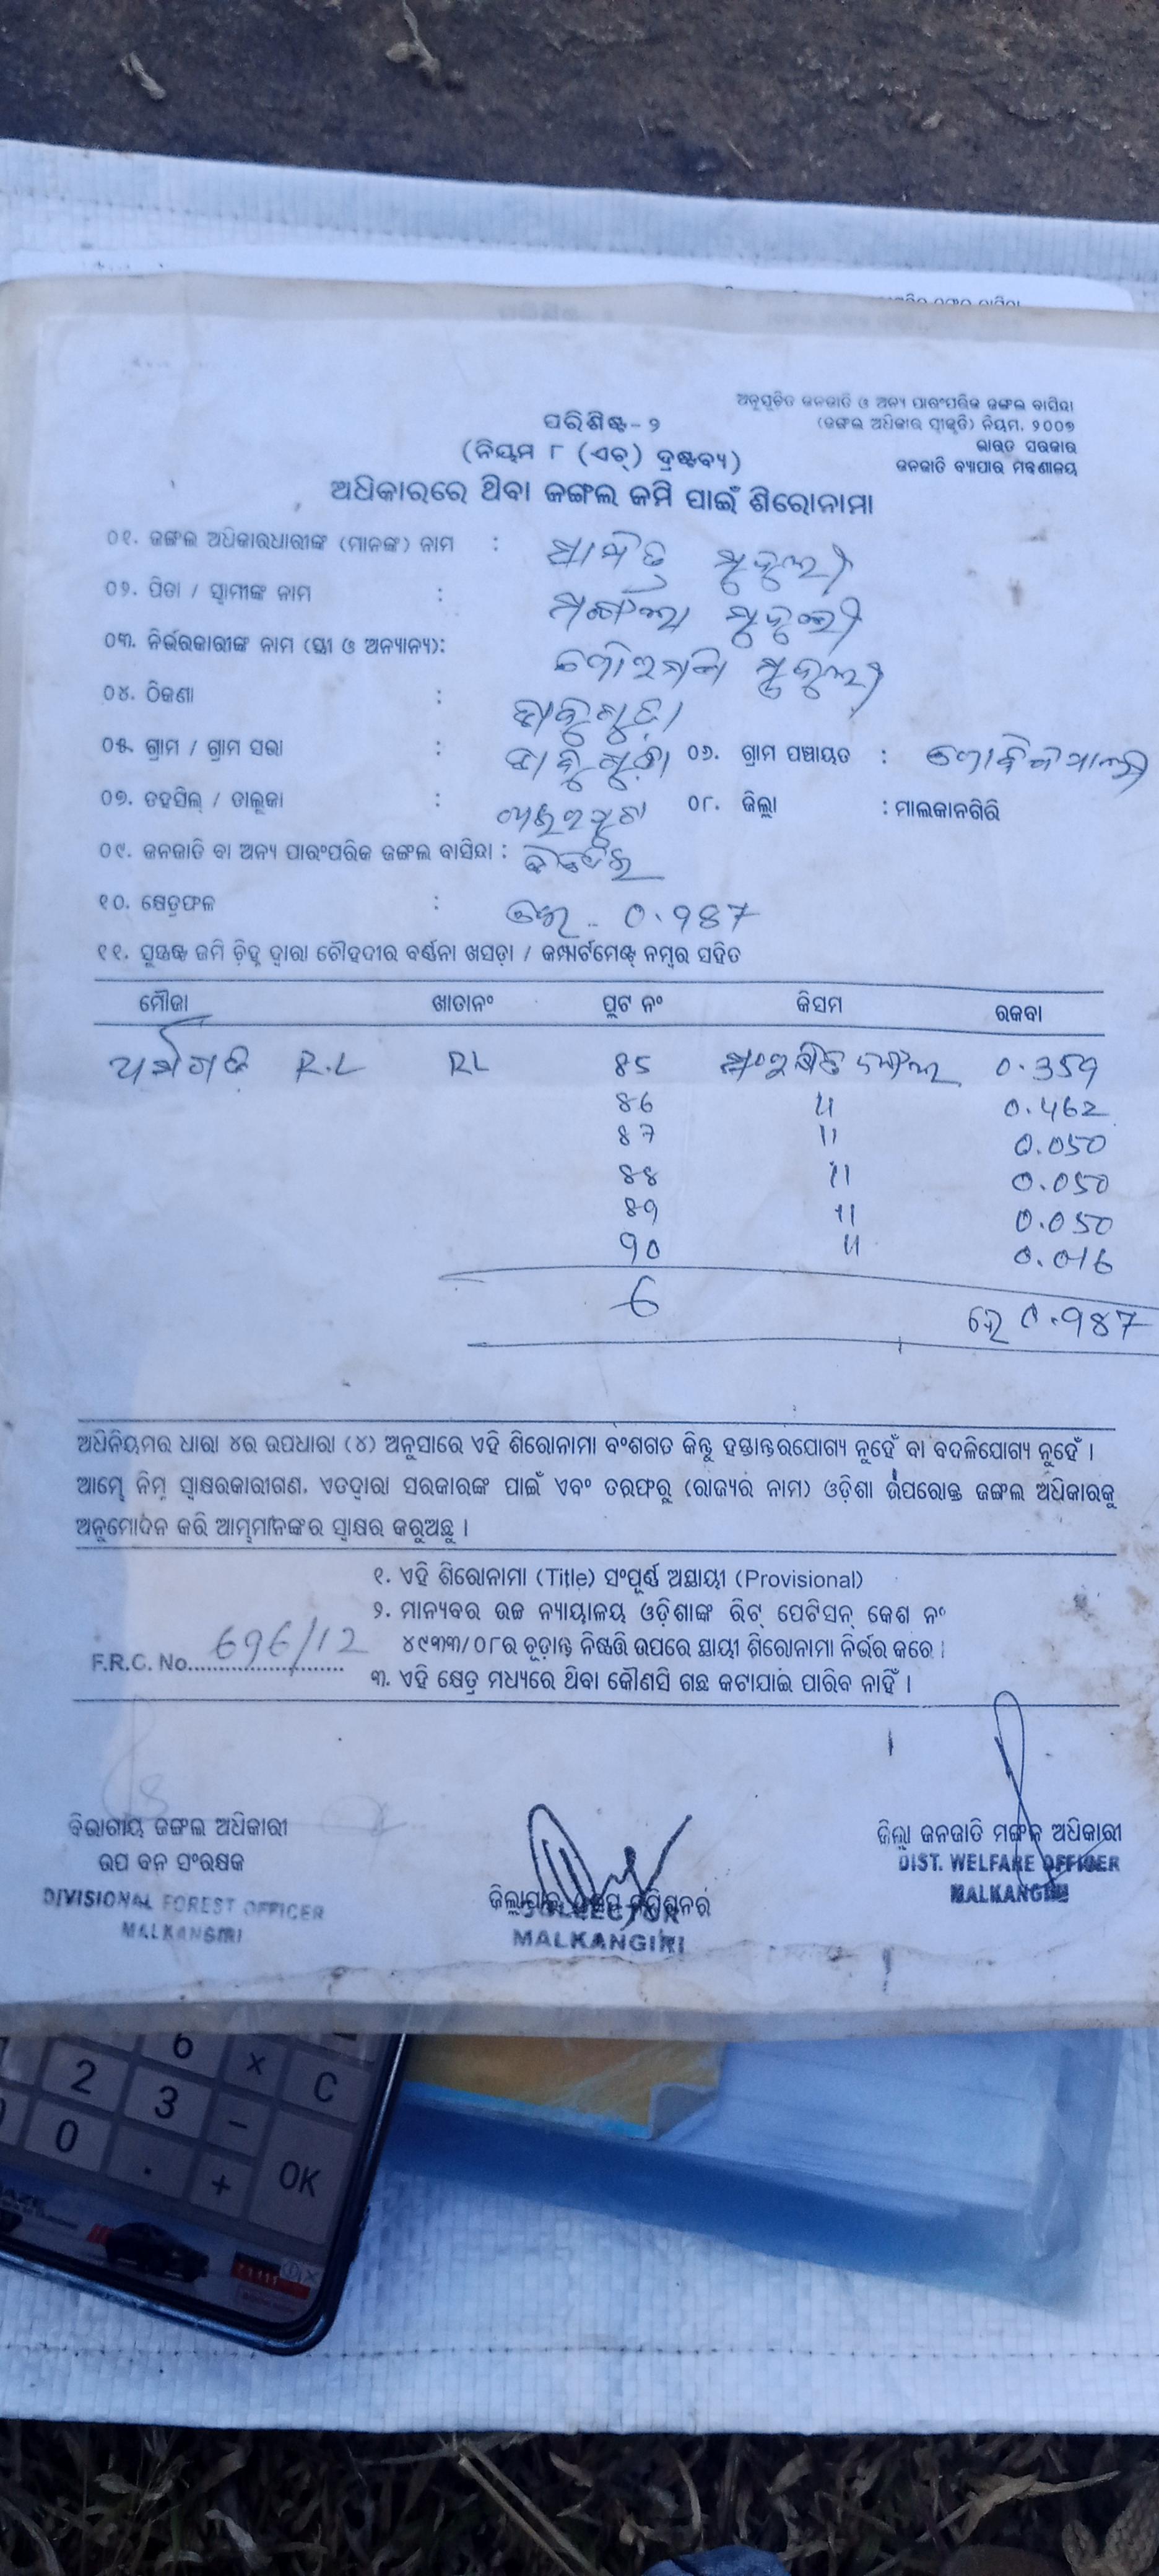 ଅନୁସୂଚିତ ଜନଜାତି ଓ ଅନ୍ୟ ପାରଂପରିକ ଜଙ୍ଗଲ ବାସିନ୍ଦା
(ଜଙ୍ଗଲ ଅଧିକାର ସ୍ୱୀକୃତି) ନିୟମ, ୨୦୦୭
ଭାରତ ସରକାର
ଜନଜାତି ବ୍ୟାପାର ମନ୍ତ୍ରଣାଳୟ
ପରିଶିଷ୍ଟ-୨
(ନିୟମ ୮ (ଏଚ୍) ଦ୍ରଷ୍ଟବ୍ୟ)
ଅଧିକାରରେ ଥିବା ଜଙ୍ଗଲ ଜମି ପାଇଁ ଶିରୋନାମା
୦୧. ଜଙ୍ଗଲ ଅଧିକାରଧାରୀଙ୍କ (ମାନଙ୍କ) ନାମ : ମୁଦୁଲୀ
୦୨. ପିତା / ସ୍ୱାମୀଙ୍କ ନାମ : ମୁଦୁଲୀ
୦୩. ନିର୍ଭରକାରୀଙ୍କ ନାମ (ସ୍ତ୍ରୀ ଓ ଅନ୍ୟାନ୍ୟ): ମୁଦୁଲୀ
୦୪. ଠିକଣା :
୦୫. ଗ୍ରାମ / ଗ୍ରାମ ସଭା : ୦୬. ଗ୍ରାମ ପଞ୍ଚାୟତ :
୦୭. ତହସିଲ୍ / ତାଲୁକା : ୦୮. ଜିଲ୍ଲା : ମାଲକାନଗିରି
୦୯. ଜନଜାତି ବା ଅନ୍ୟ ପାରଂପରିକ ଜଙ୍ଗଲ ବାସିନ୍ଦା :
୧୦. କ୍ଷେତ୍ରଫଳ : 0.987
୧୧. ସୁସ୍ପଷ୍ଟ ଜମି ଚିହ୍ନ ଦ୍ୱାରା ଚୌହଦୀର ବର୍ଣ୍ଣନା ଖସଡ଼ା / କମ୍ପାର୍ଟମେଣ୍ଟ ନମ୍ବର ସହିତ
ମୌଜା ଖାତାନଂ ପ୍ଲଟ ନଂ କିସମ ରକବା
R.L RL 85 0.359
86 11 0.462
87 11 0.050
88 11 0.050
89 11 0.050
90 11 0.016
6 ହେ 0.987
ଅଧିନିୟମର ଧାରା ୪ର ଉପଧାରା (୪) ଅନୁସାରେ ଏହି ଶିରୋନାମା ବଂଶଗତ କିନ୍ତୁ ହସ୍ତାନ୍ତରଯୋଗ୍ୟ ନୁହେଁ ବା ବଦଳିଯୋଗ୍ୟ ନୁହେଁ ।
ଆମ୍ଭେ ନିମ୍ନ ସ୍ୱାକ୍ଷରକାରୀଗଣ, ଏତଦ୍ୱାରା ସରକାରଙ୍କ ପାଇଁ ଏବଂ ତରଫରୁ (ରାଜ୍ୟର ନାମ) ଓଡ଼ିଶା ଉପରୋକ୍ତ ଜଙ୍ଗଲ ଅଧିକାରକୁ
ଅନୁମୋଦନ କରି ଆମ୍ଭମାନଙ୍କର ସ୍ୱାକ୍ଷର କରୁଅଛୁ ।
୧. ଏହି ଶିରୋନାମା (Title) ସଂପୂର୍ଣ୍ଣ ଅସ୍ଥାୟୀ (Provisional)
୨. ମାନ୍ୟବର ଉଚ୍ଚ ନ୍ୟାୟାଳୟ ଓଡ଼ିଶାଙ୍କ ରିଟ୍ ପେଟିସନ୍ କେଶ ନଂ
୪୯୩୩/୦୮ର ଚୂଡ଼ାନ୍ତ ନିଷ୍ପତ୍ତି ଉପରେ ସ୍ଥାୟୀ ଶିରୋନାମା ନିର୍ଭର କରେ ।
F.R.C. No. 696/12
୩. ଏହି କ୍ଷେତ୍ର ମଧ୍ୟରେ ଥିବା କୌଣସି ଗଛ କଟାଯାଇ ପାରିବ ନାହିଁ ।
ବିଭାଗୀୟ ଜଙ୍ଗଲ ଅଧିକାରୀ
ଉପ ବନ ସଂରକ୍ଷକ
DIVISIONAL FOREST OFFICER
MALKANGIRI
COLLECTOR
MALKANGIRI
ଜିଲ୍ଲା ଜନଜାତି ମଙ୍ଗଳ ଅଧିକାରୀ
DIST. WELFARE OFFICER
MALKANGIRI
6 × C
2 3 −
0 . + OK